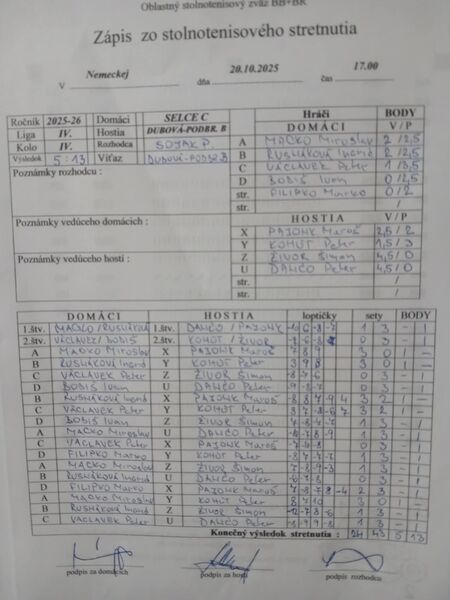 Oblastný stolnotenisový zväz BB+BR
Zápis zo stolnotenisového stretnutia
V Nemeckej dňa 20.10.2025 čas 17.00
Ročník 2025-26 Domáci SELCE C
Liga IV. Hostia DUBOVÁ-PODBR. B
Kolo IV. Rozhodca SOJAK P.
Výsledok 5:13 Víťaz DUBOVÁ-PODBR B
Poznámky rozhodcu :
Poznámky vedúceho domácich :
Poznámky vedúceho hostí :
Hráči BODY
DOMÁCI V / P
A MACKO Miroslav 2 / 2,5
B RUSNÁKOVÁ Ingrid 2 / 2,5
C VÁCLAVEK Peter 1 / 3,5
D BOBIŠ Ivan 0 / 2,5
str. FILIPKO Marko 0 / 2
str. /
HOSTIA V / P
X PAJONK Maroš 2,5 / 2
Y KOHÚT Peter 1,5 / 3
Z ŽIVOR Šimon 4,5 / 0
U DANČO Peter 4,5 / 0
str. /
str. /
DOMÁCI HOSTIA loptičky sety BODY
1.štv. MACKO / RUSNÁKOVÁ 1.štv. DANČO / PAJONK 1 3 - 1
2.štv. VÁCLAVEK / BOBIŠ 2.štv. KOHÚT / ŽIVOR 1 3 - 1
A MACKO Miroslav X PAJONK Maroš 7 8 9 3 0 1 -
B RUSNÁKOVÁ Ingrid Y KOHÚT Peter 3 9 8 3 0 1 -
C VÁCLAVEK Peter Z ŽIVOR Šimon 0 3 - 1
D BOBIŠ Ivan U DANČO Peter 0 3 - 1
B RUSNÁKOVÁ Ingrid X PAJONK Maroš 3 2 1 -
C VÁCLAVEK Peter Y KOHÚT Peter 3 2 1 -
D BOBIŠ Ivan Z ŽIVOR Šimon 1 3 - 1
A MACKO Miroslav U DANČO Peter 1 3 - 1
C VÁCLAVEK Peter X PAJONK Maroš 0 3 - 1
D FILIPKO Marko Y KOHÚT Peter 1 3 - 1
A MACKO Miroslav Z ŽIVOR Šimon 1 3 - 1
B RUSNÁKOVÁ Ingrid U DANČO Peter 0 3 - 1
D FILIPKO Marko X PAJONK Maroš 2 3 - 1
A MACKO Miroslav Y KOHÚT Peter 3 0 1 -
B RUSNÁKOVÁ Ingrid Z ŽIVOR Šimon 1 3 - 1
C VÁCLAVEK Peter U DANČO Peter 1 3 - 1
Konečný výsledok stretnutia : 24 43 5 13
podpis za domácich podpis za hostí podpis rozhodcu